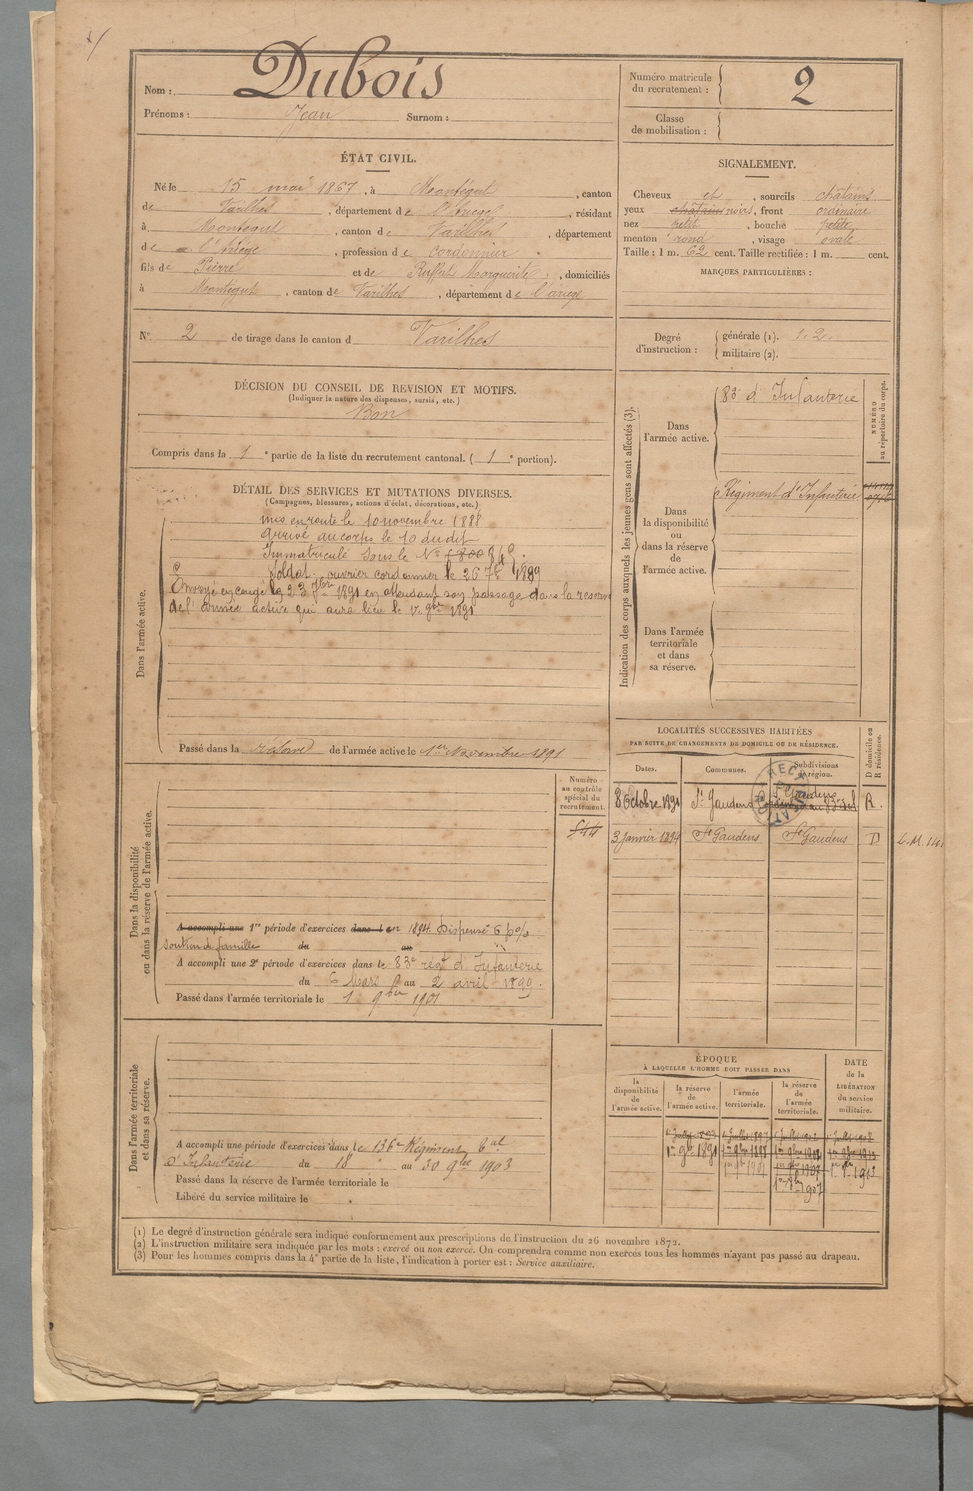 Nom : Dubois
Prénoms : Jean Surnom :
Numéro matricule du recrutement : 2
Classe de mobilisation :
ÉTAT CIVIL.
Né le 15 mai 1867, à Montégut, canton
de Varilhes, département de l'Ariège, résidant
à Montégut, canton de Varilhes, département
de l'Ariège, profession de cordonnier
fils de Pierre et de Ruffat Marguerite, domiciliés
à Montégut, canton de Varilhes, département de l'ariège
N° 2 de tirage dans le canton d Varilhes
SIGNALEMENT.
Cheveux et, sourcils châtains
yeux châtains noirs, front ordinaire
nez petit, bouche petite
menton rond, visage ovale
Taille : 1 m. 62 cent. Taille rectifiée : 1 m. cent.
MARQUES PARTICULIÈRES :
Degré d'instruction :
générale (1). 1.2.
militaire (2).
DÉCISION DU CONSEIL DE REVISION ET MOTIFS.
(Indiquer la nature des dispenses, sursis, etc.)
Bon
Compris dans la 1e partie de la liste du recrutement cantonal. (1e portion).
DÉTAIL DES SERVICES ET MUTATIONS DIVERSES.
(Campagnes, blessures, actions d'éclat, décorations, etc.)
Dans l'armée active.
mis en route le 10 novembre 1888
arrivé au corps le 10 du dit
Immatriculé sous le N°
Soldat ouvrier cordonnier le 26 7bre 1889
Envoyé en congé le 23 7bre 1891 en attendant son passage dans la réserve
de l'armée active qui aura lieu le 1er 9bre 1891
Passé dans la réserve de l'armée active le 1er Novembre 1891
Indication des corps auxquels les jeunes gens sont affectés (3).
NUMÉRO au répertoire du corps.
Dans l'armée active.
83e d'Infanterie
Dans la disponibilité ou dans la réserve de l'armée active.
Régiment d'Infanterie
Dans l'armée territoriale et dans sa réserve.
LOCALITÉS SUCCESSIVES HABITÉES
PAR SUITE DE CHANGEMENTS DE DOMICILE OU DE RÉSIDENCE.
Dates. Communes. Subdivisions de région. D domicile ou R résidence.
8 Octobre 1891 St Gaudens St Gaudens R.
3 Janvier 1894 St Gaudens St Gaudens D
Dans la disponibilité ou dans la réserve de l'armée active.
Numéro au contrôle spécial du recrutement.
544
A accompli une 1re période d'exercices dans l en 1894. Dispensé 6 p%
soutien de famille du au
A accompli une 2e période d'exercices dans le 83e régt d'Infanterie
du 6 Mars au 2 avril 1899.
Passé dans l'armée territoriale le 1 9bre 1901
Dans l'armée territoriale et dans sa réserve.
A accompli une période d'exercices dans le 136e Régiment tal
d'Infanterie du 18 au 30 9bre 1903
Passé dans la réserve de l'armée territoriale le
Libéré du service militaire le
ÉPOQUE
À LAQUELLE L'HOMME DOIT PASSER DANS
la disponibilité de l'armée active. la réserve de l'armée active. l'armée territoriale. la réserve de l'armée territoriale.
DATE de la LIBÉRATION du service militaire.
1er 9bre 1891
(1) Le degré d'instruction générale sera indiqué conformément aux prescriptions de l'instruction du 26 novembre 1872.
(2) L'instruction militaire sera indiquée par les mots : exercé ou non exercé. On comprendra comme non exercés tous les hommes n'ayant pas passé au drapeau.
(3) Pour les hommes compris dans la 4e partie de la liste, l'indication à porter est : Service auxiliaire.